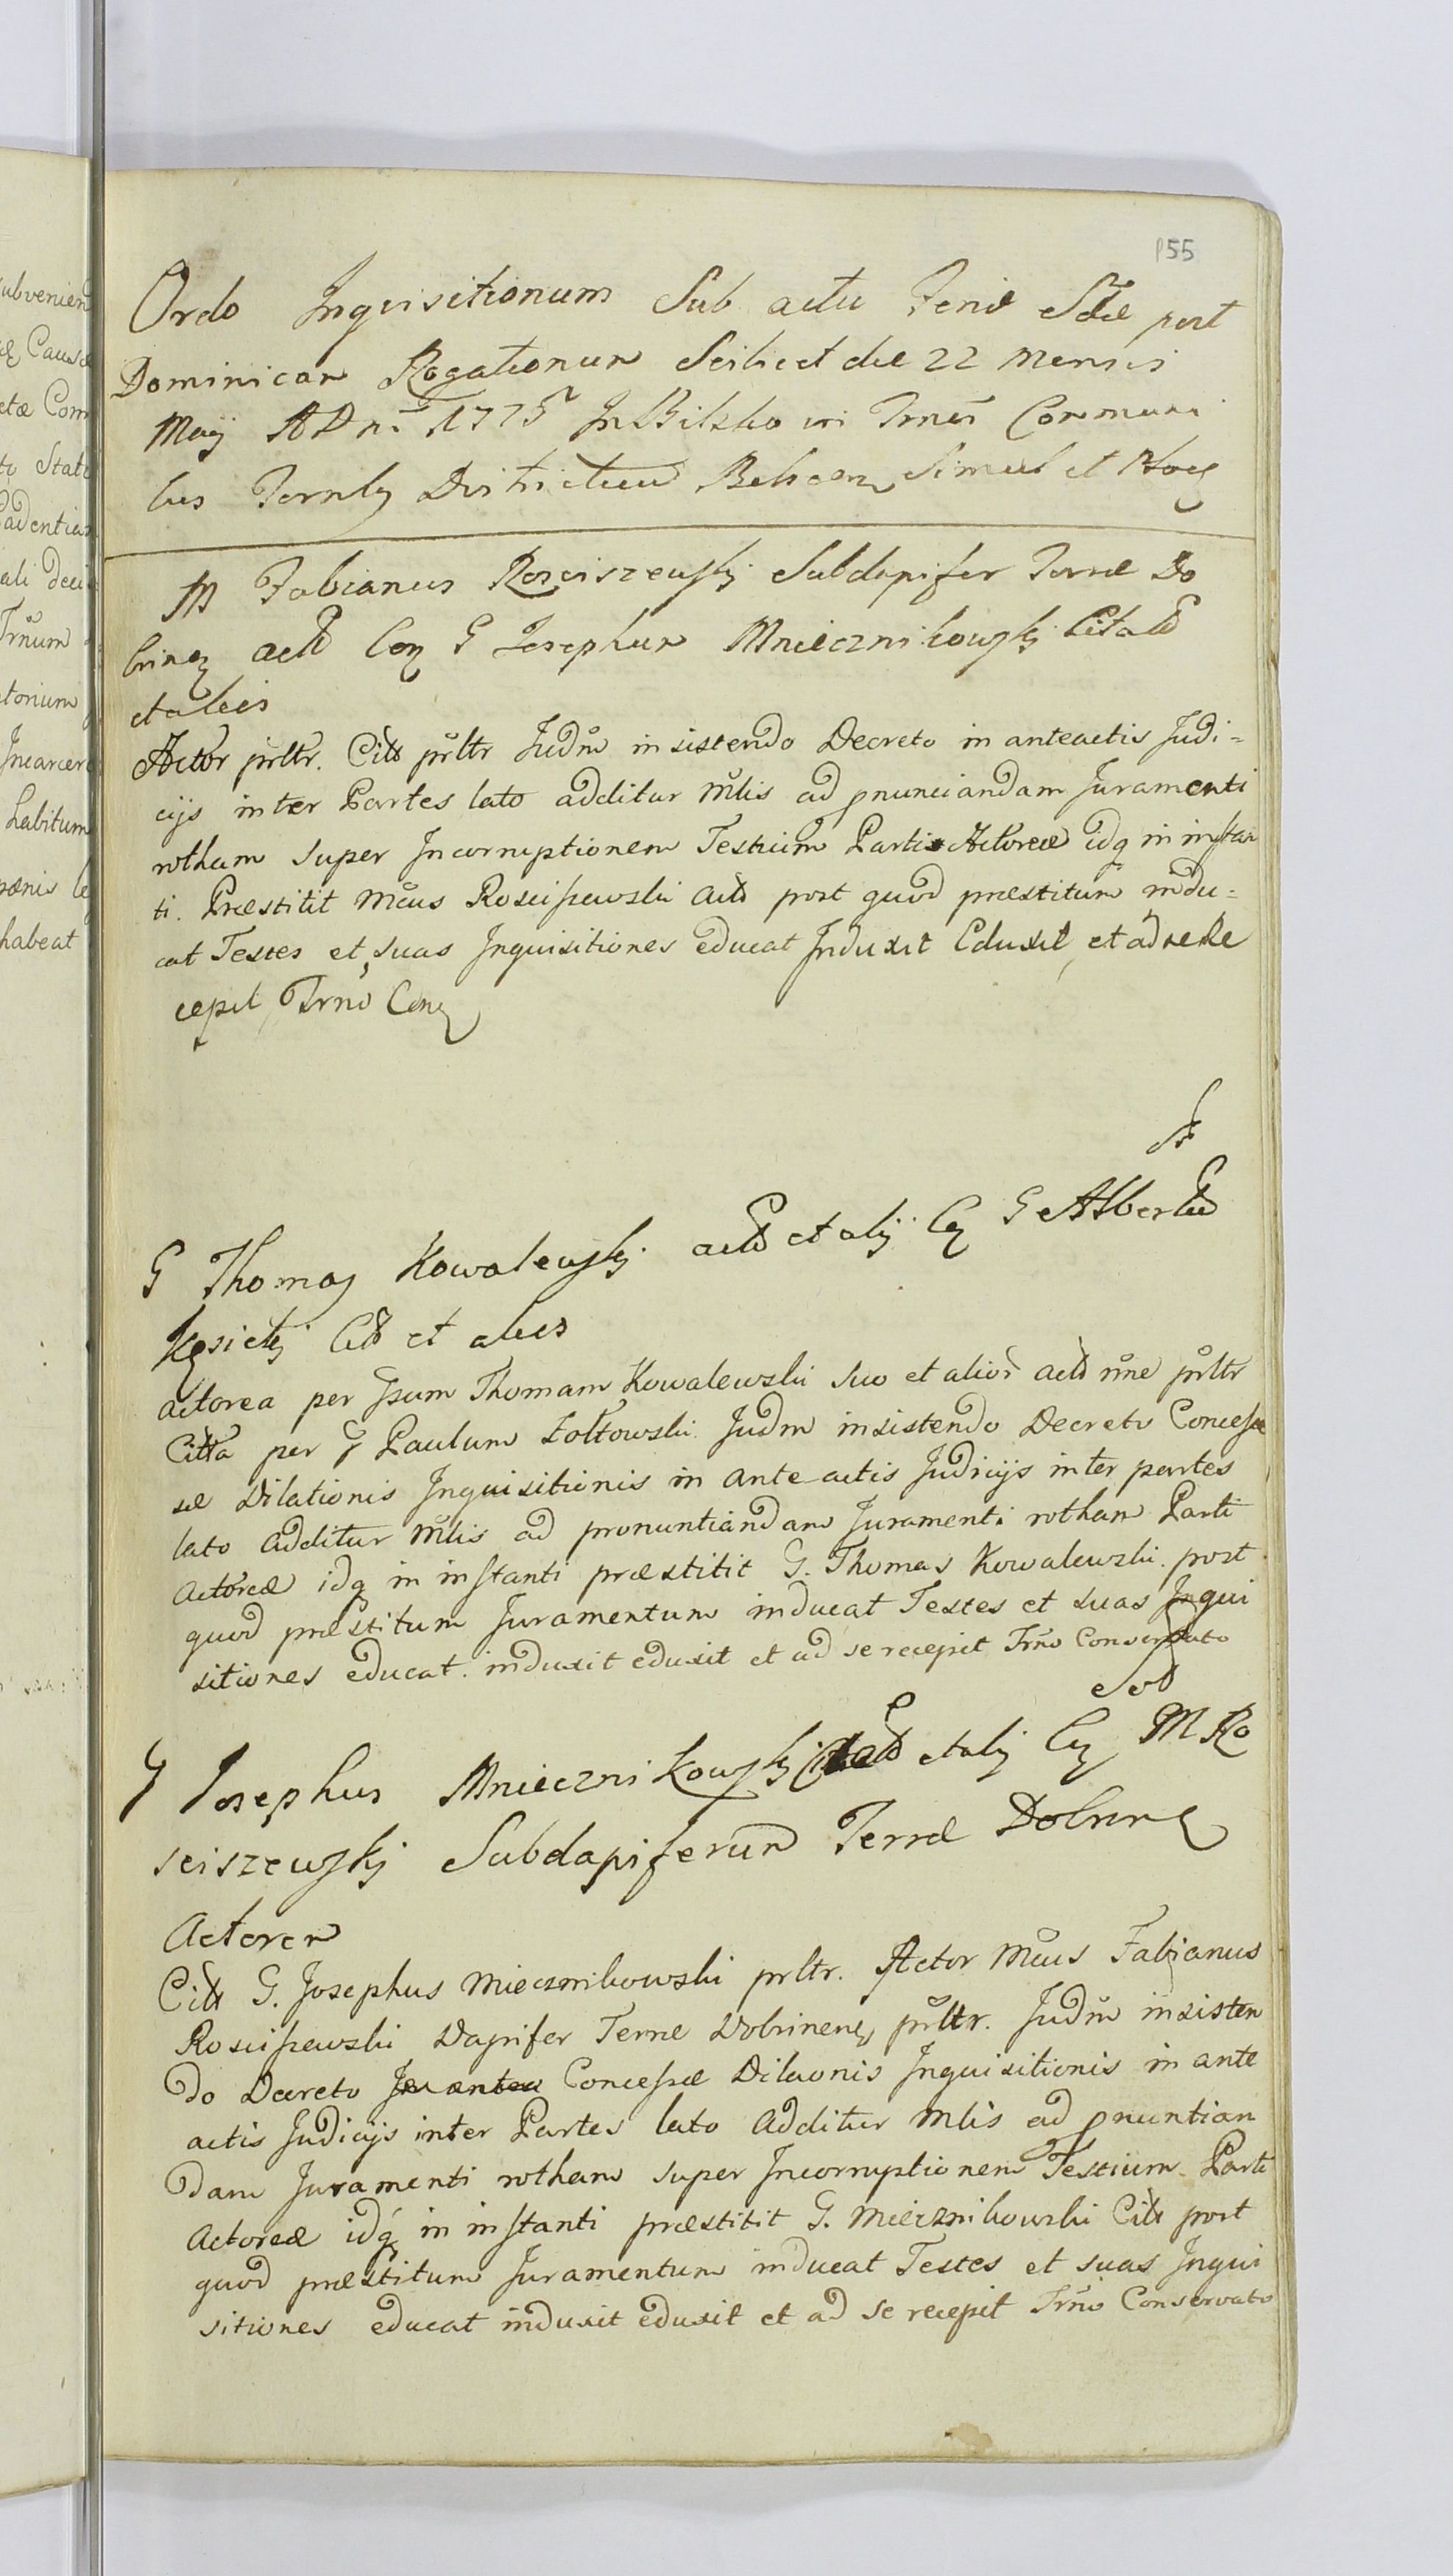 155
Ordo Inquisitionum Sub actu Feriæ Sdæ post
Dominicam Rogationum Scilicet die 22 Mensis
Maij A Dni 1775 In Bilsko in Trnis Communi
bus Ternlb Districtuu Bielscen Simul et
M Fabianus Rosciszewskj Subdapifer Terræ Do
brinen act Con G Josephum Mniecznikowskj Citatu
et aleis
Actor prltr. Citt prltr Judm insistendo Decreto in anteactis Judi=
cijs inter Partes lato additur Mlis ad pnunciandam Juramenti
rotham super Incorruptionem Testium Partis Actoreæ idq in instan
ti. Præstitit Mcus Rosciszewski act post quod præstitum indu=
cat Testes et suas Inquisitiones educat Induxit Eduxit, et ad se Re
cepit, Trno Con
G Thomas Kowalewskj act et alij C G Albertu
Citt et aleis
actorea per Ipsum Thomam Kowalewski suo et alior act nne prltr
Citta per G Paulum Żołtowski Judm insistendo Decreto Concess
æ Dilationis Inquisitionis in ante actis Judicijs inter partes
lato additur Mlis ad pronuntiandam Juramenti rotham Parti
Actoreæ idq in instanti præstitit G. Thomas Kowalewski. post
quod præstitum Juramentum inducat Testes et suas Inqui
sitiones educat. induxit eduxit et ad se recepit Trno Conservato
G Josephus Mniecznikowskj et alij C M Ro
sciszewskj Subdapiferum Terræ Dobrin
Actorem
Citt G. Josephus Miecznikowski prltr. Actor Mcus Fabianus
Rosciszewski Dapifer Terræ Dobrinen prltr. Judm insisten
do Decreto Concessæ Dilaonis Inquisitionis in ante
actis Judicijs inter Partes lato Additur Mlis ad pnuntian
dam Juramenti rotham super Incorruptionem Testium Parti
Actoreæ idq in instanti præstitit G. Miecznikowski Citt post
quod præstitum Juramentum inducat Testes et suas Inqui
sitiones educat induxit eduxit et ad se recepit Trno Conservato